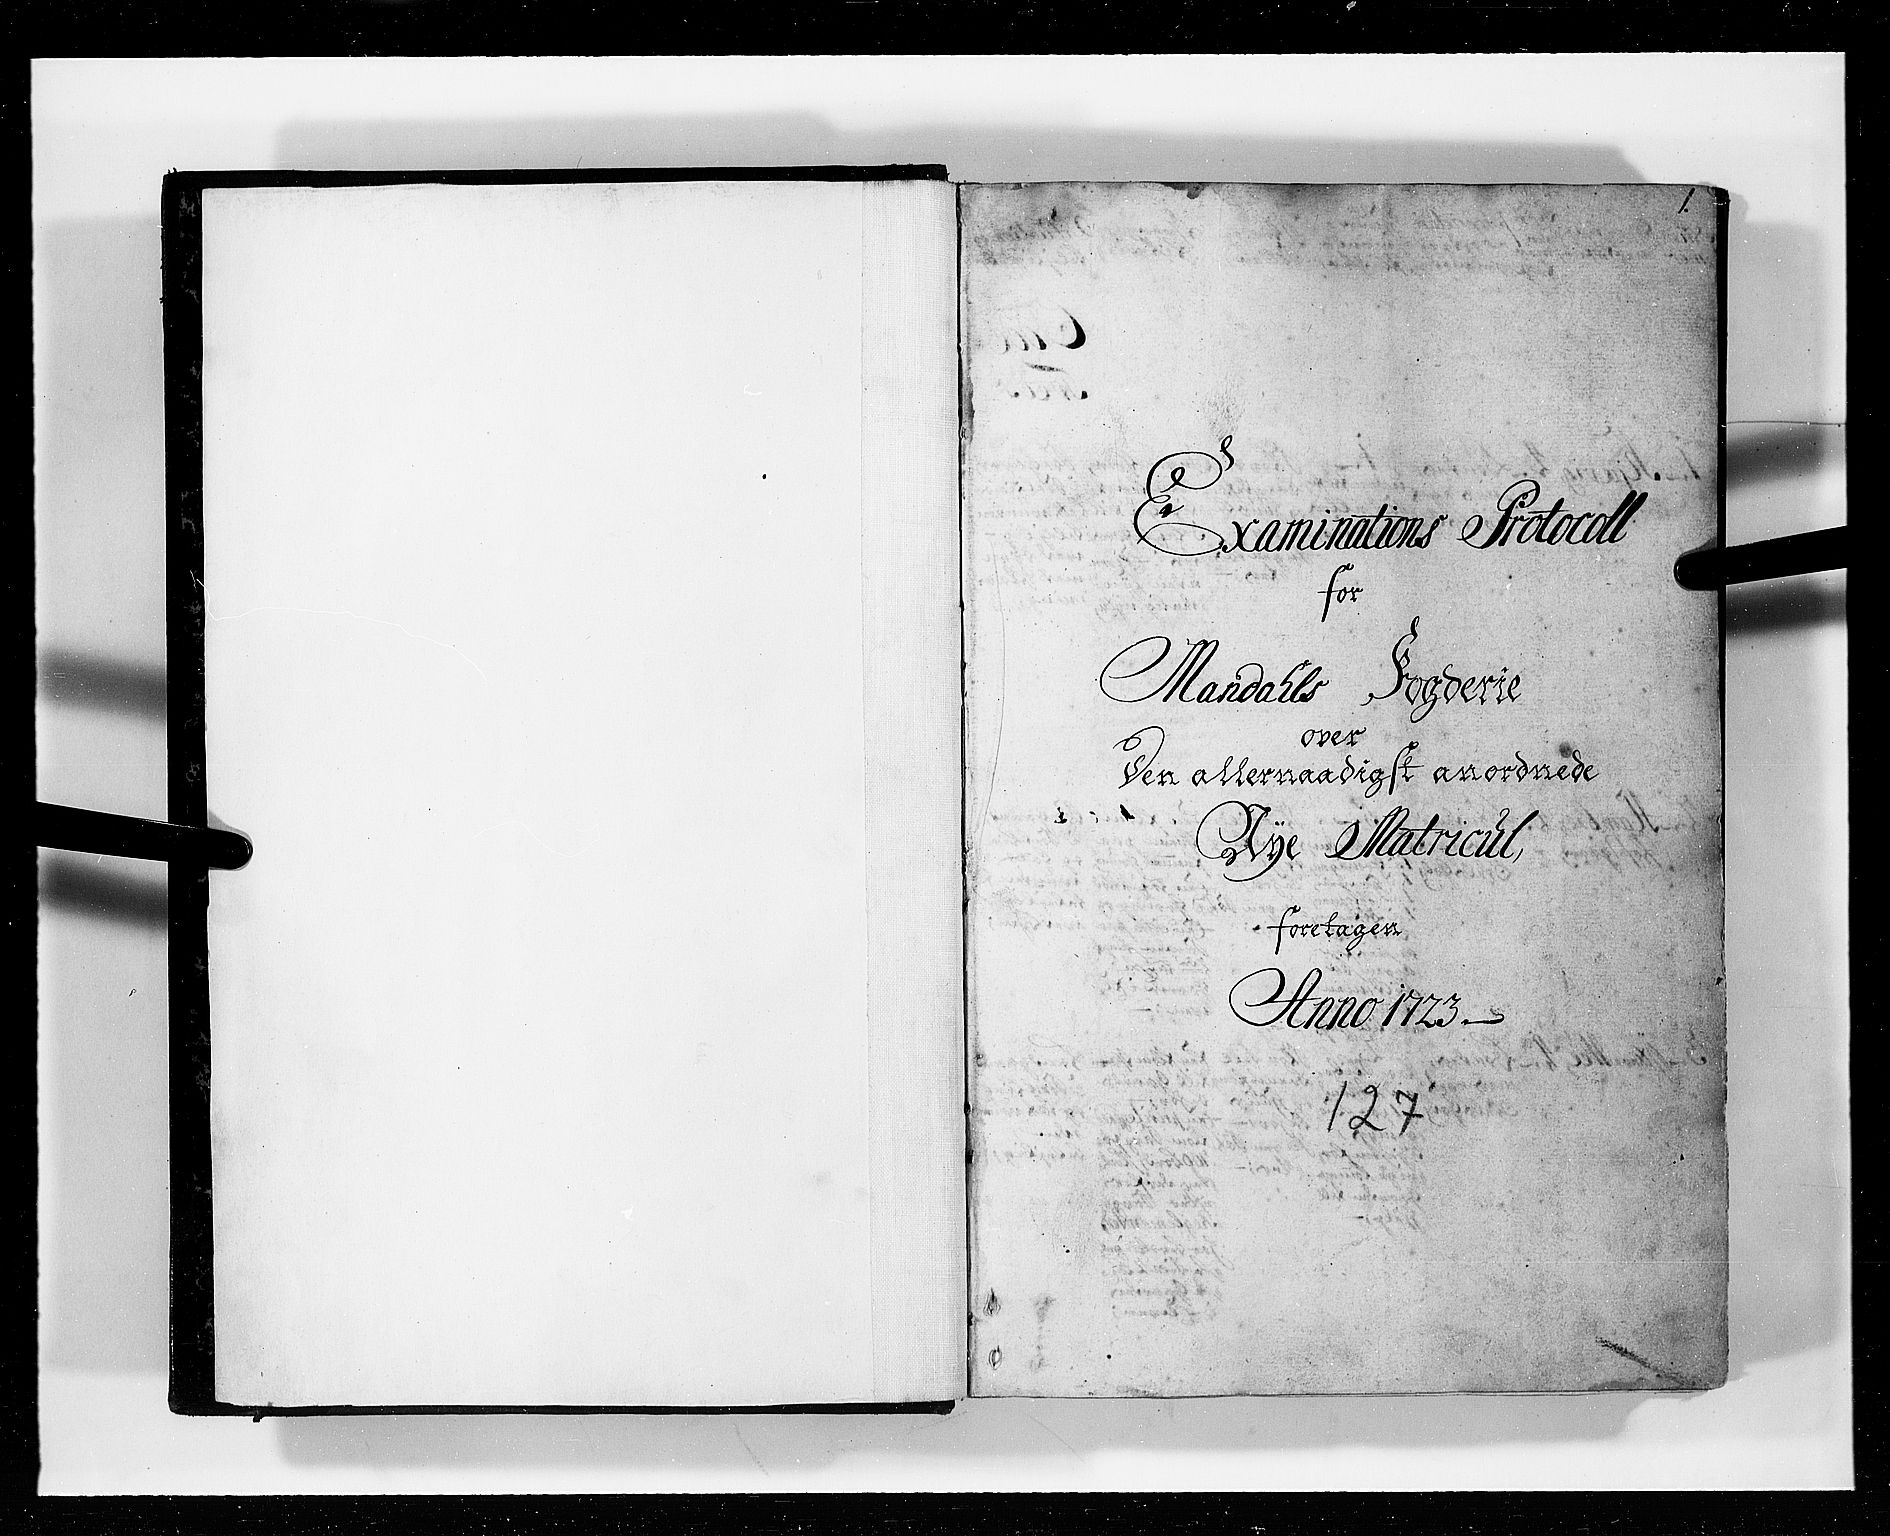 1.
Examinations Protocoll
for
Mandahls Fogderie
over
Den allernaadigst anordnede
Nÿe Matricul,
foretagen
Anno 1723.
127